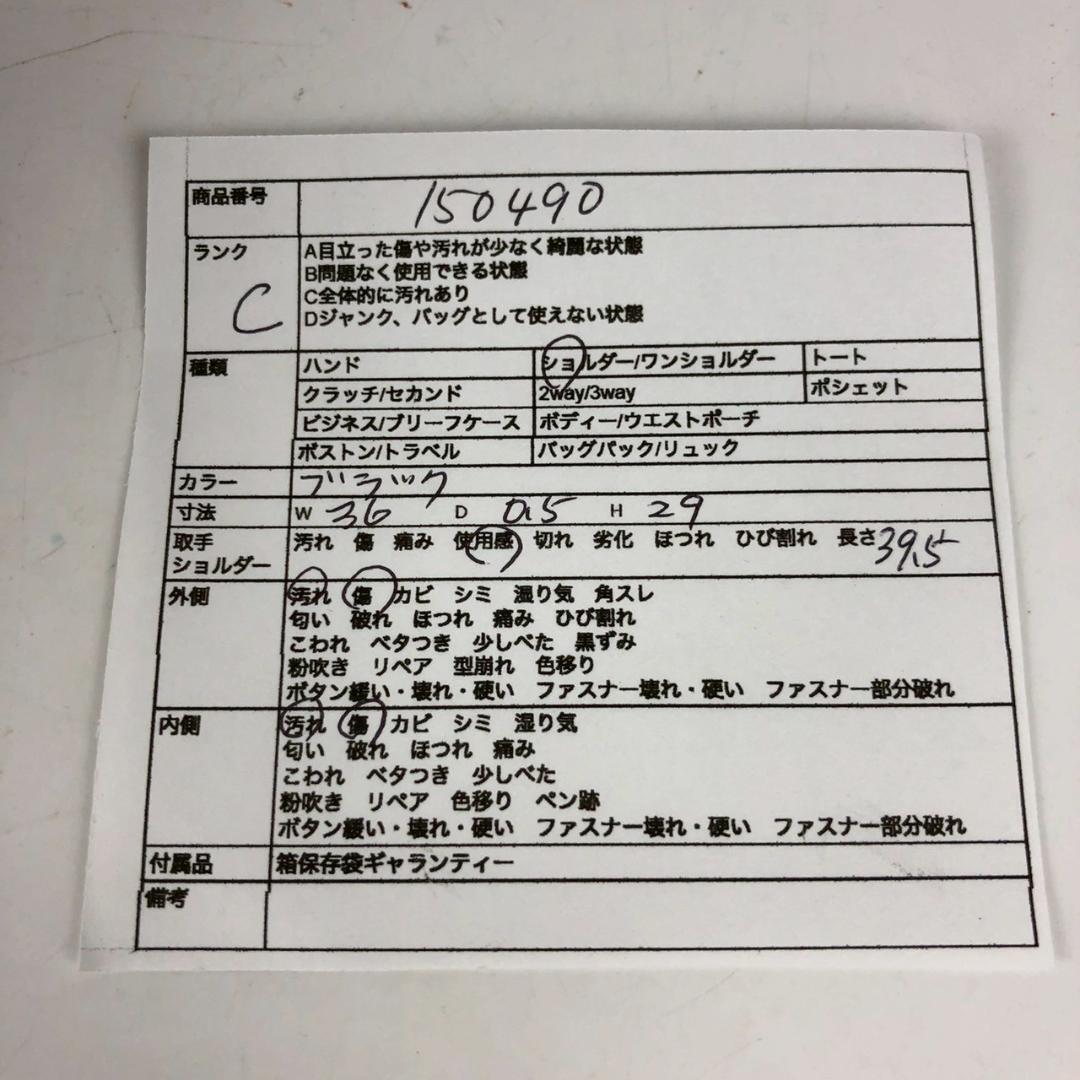 商品番号 150490
ランク C
A目立った傷や汚れが少なく綺麗な状態
B問題なく使用できる状態
C全体的に汚れあり
Dジャンク、バッグとして使えない状態
種類 ハンド ショルダー/ワンショルダー トート
クラッチ/セカンド 2way/3way ポシェット
ビジネス/ブリーフケース ボディー/ウエストポーチ
ボストン/トラベル バッグパック/リュック
カラー ブラック
寸法 W 36 D 0.5 H 29
取手 汚れ 傷 痛み 使用感 切れ 劣化 ほつれ ひび割れ 長さ39.5
ショルダー
外側 汚れ 傷 カビ シミ 湿り気 角スレ
匂い 破れ ほつれ 痛み ひび割れ
こわれ ベタつき 少しべた 黒ずみ
粉吹き リペア 型崩れ 色移り
ボタン緩い・壊れ・硬い ファスナー壊れ・硬い ファスナー部分破れ
内側 汚れ 傷 カビ シミ 湿り気
匂い 破れ ほつれ 痛み
こわれ ベタつき 少しべた
粉吹き リペア 色移り ペン跡
ボタン緩い・壊れ・硬い ファスナー壊れ・硬い ファスナー部分破れ
付属品 箱保存袋ギャランティー
備考